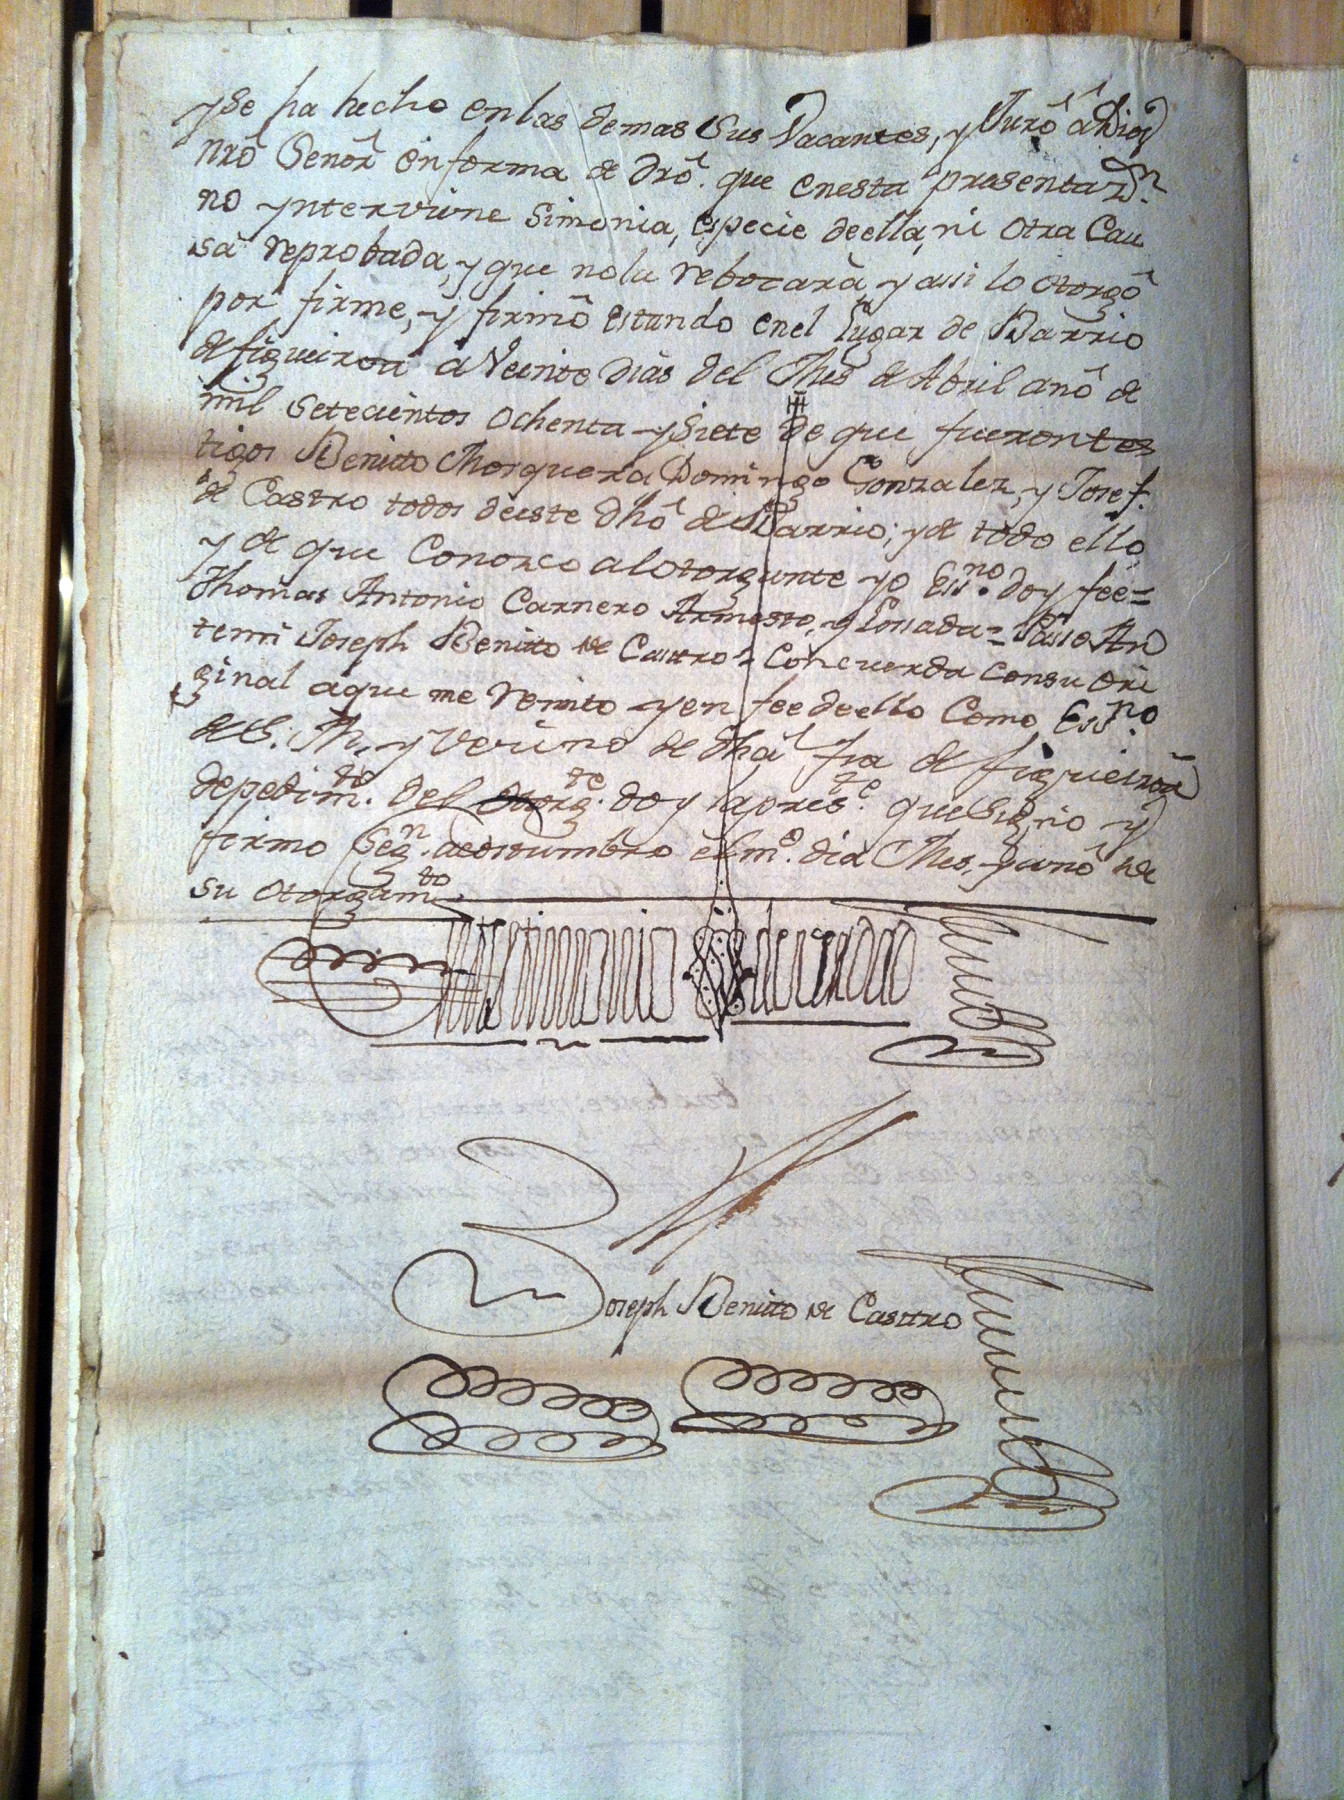 y Se ha hecho en las demas Sus Vacantes, y Juró â Dios
nrô Senôr en forma de drô. que enesta presentaz.n
no yntervine Simonia, especie deella, ni Otra Cau
sa reprobada, y que no la rebocarà y assi lo otorgô
por firme, y firmô estando enel Lugar de Barrio
de figueiroa a Veinte dias del Mes de Abril anô de
mil Setecientos Ochenta y Siete de que fueron tes
tigos Benitto Mosquera Domingo Gonzalez, y Josef.
de Castro todos deeste dhô de Barrio; y de todo ello,
y de que Conozco al otorgante yo Ess.no doy fee=
Thomas Antonio Carnero Armesto, y Losada= Passo An
temi Joseph Benitto de Casttro= Concuerda consu Ori
ginal aque me remito y en fee deello Como Ess.no
de S. M. y Vecino de dhâ fra de figueiroâ
depedim.to del otorg.te doy lapres.te que Signo y
firmo Seg.n acostumbro el m.o dia Mes, y anô de
su otorgam.to
testimonio deverdad
Joseph Benitto de Casttro